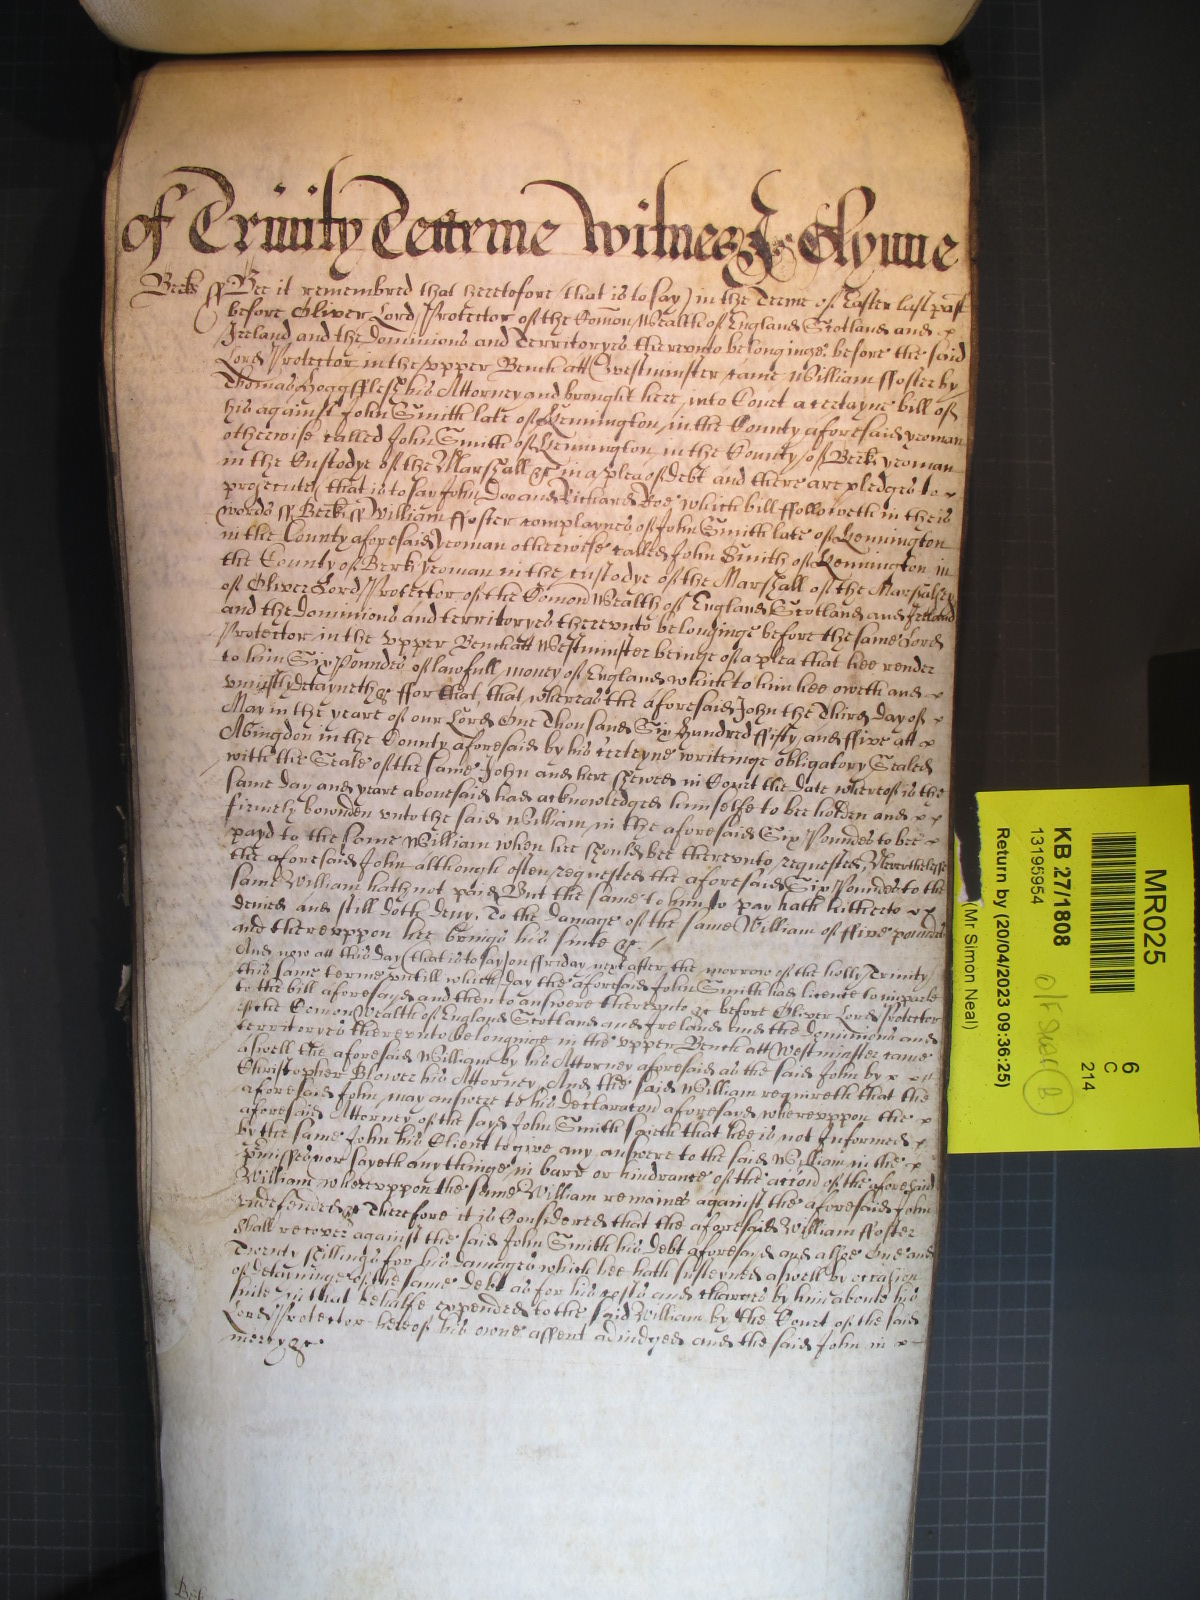 of Trinity Tearme Witnes J Glynne
Berks ss Bee it remembred that heretofore (that is to say) in the Terme of Easter last past
before Oliver Lord Protector of the Com̄on Wealth of England Scotland and
Ireland and the Dominions and Territoryes therevnto belonginge before the said
Lord Protector in the vpper Bench att Westminster came William ffoster by
Thomas his Attorney and brought here into Court a certayne bill of
his against John Smith late of Kennington in the County aforesaid yeoman
otherwise called John Smith of Kennington in the County of Berk yeoman
in the Custodye of the Marshall &c in a plea of Debt and there are pledges to
prosecute (that is to say John Doo and Richard Roe which bill ffolloweth in theis
words ss Berk ss William ffoster complaynes of John Smith late of Kennington
in the County aforesaid yeoman otherwise called John Smith of Kennington in
the County of Berk yeoman in the custodye of the Marshall of the Marshalsey
of Oliver Lord Protector of the Com̄on Wealth of England Scotland and Ireland
and the Dominions and territoryes therevnto belonginge before the same Lord
Protector in the vpper Bench att Westminster beinge of a plea that hee render
to him Six Poundes of lawfull money of England which to him hee oweth and
vniustly detayneth &c ffor that, that whereas the aforesaid John the Third day of
May in the yeare of our Lord One Thousand Six hundred ffifty and ffive att
Abingdon in the County aforesaid by his certeyne writinge obligatory Sealed
with the Seale of the same John and here shewed in Court the date whereof is the
same day and yeare abouesaid had acknowledged himselfe to bee holden and
firmely bownden vnto the said William in the aforesaid Six Poundes to bee
payd to the same William when hee should bee therevnto requested, Neverthelesse
the aforesaid John although often requested the aforesaid Six Poundes to the
same William hath not paid But the same to him to pay hath hitherto
denied and still doth deny, To the damage of the same William of ffive poundes
and therevppon hee brings his suite &c
And now att this day (that is to say) on ffriday next after the morrow of the holly Trinity
this same terme vntill which day the aforesaid John Smith had licence to imparle
to the bill aforesayd and then to answere therevnto &c before Oliver Lord Protector
of the Com̄on Wealth of England Scotland and Ireland and the dominions and
territoryes therevnto belonginge in the vpper Bench att Westminster came
aswell the aforesaid William by his Attorney aforesaid as the said John by
Christopher Blower his Attorney, And the said William requireth that the
aforesaid John may answere to his declaraton aforesayd wherevppon the
aforesaid Attorney of the sayd John Smith saieth that hee is not Informed
by the same John his Client to give any answere to the said William in the
p̄misses nor sayeth any thinge in barr or hindrance of the acc̄on of the aforesaid
William wherevppon the same William remaines against the aforesaid John
vndefended &c Therefore it is Considered that the aforesaid William ffoster
shall recover against the said John Smith his debt aforesayd and alsoe One and
Twenty shillings for his damages which hee hath susteyned aswell by occasion
of detayninge of the same debt as for his costs and charges by him aboute his
suite in that behalfe expended to the said William by the Court of the said
Lord Protector here of his owne assent adiudged and the said John in
mercy &c
MR025
6
C
214
KB 27/1808
13195954
Return by (20/04/2023 09:36:25)
(Mr Simon Neal)
B